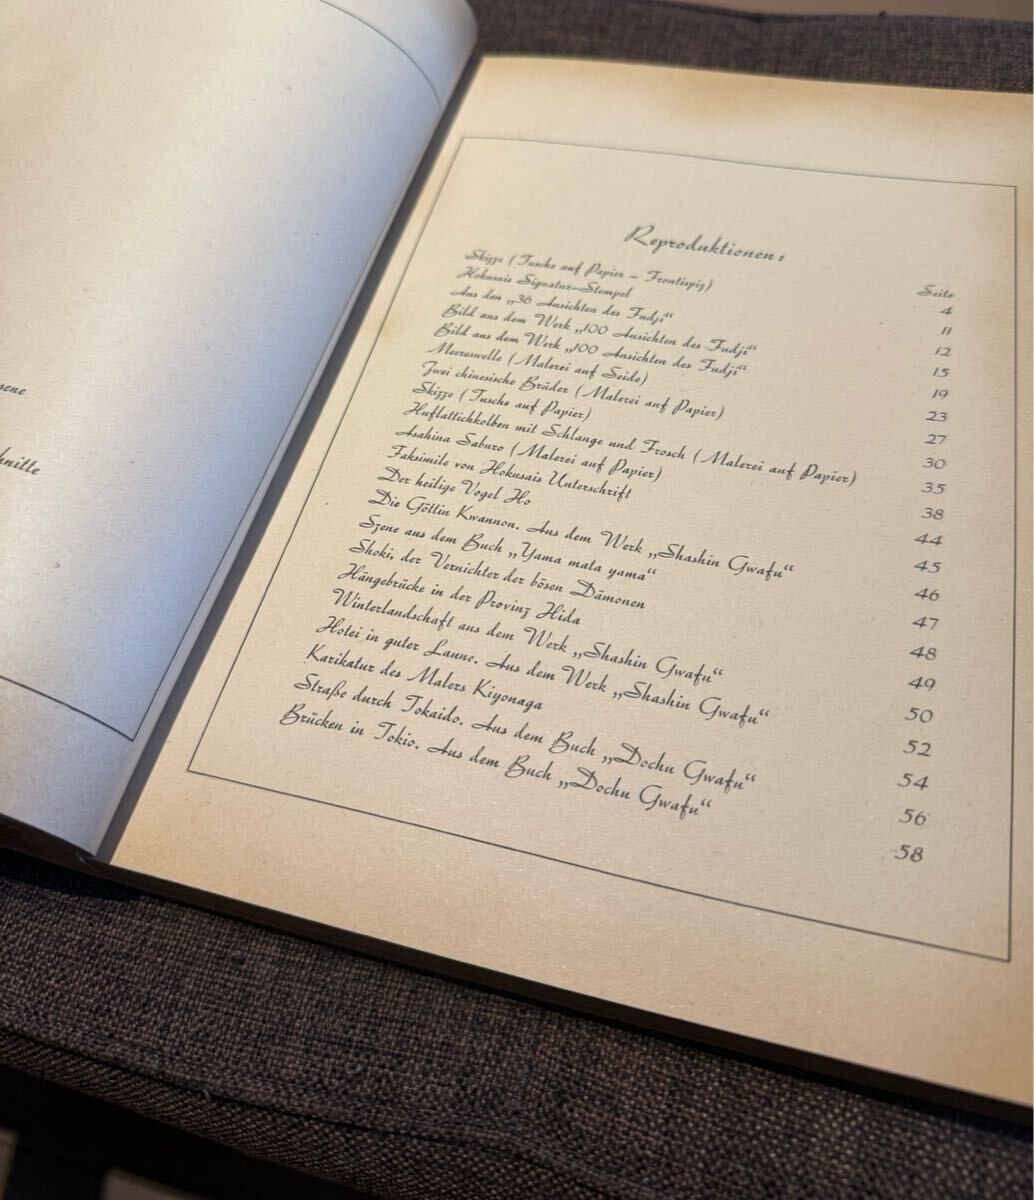 sene
hnitte
Reproduktionen:
Seite
Skizze (Tusche auf Papier – Frontispiz) 4
Hokusais Signatur-Stempel 11
Aus den „36 Ansichten des Fudji“ 12
Bild aus dem Werk „100 Ansichten des Fudji“ 15
Bild aus dem Werk „100 Ansichten des Fudji“ 19
Meereswelle (Malerei auf Seide) 23
Zwei chinesische Brüder (Malerei auf Papier) 27
Skizze (Tusche auf Papier) 30
Huflattichkolben mit Schlange und Frosch (Malerei auf Papier) 35
Asahina Saburo (Malerei auf Papier) 38
Faksimile von Hokusais Unterschrift 44
Der heilige Vogel Ho 45
Die Göttin Kwannon. Aus dem Werk „Shashin Gwafu“ 46
Szene aus dem Buch „Yama mata yama“ 47
Shoki, der Vernichter der bösen Dämonen 48
Hängebrücke in der Provinz Hida 49
Winterlandschaft aus dem Werk „Shashin Gwafu“ 50
Hotei in guter Laune. Aus dem Werk „Shashin Gwafu“ 52
Karikatur des Malers Kiyonaga 54
Straße durch Tokaido. Aus dem Buch „Dochu Gwafu“ 56
Brücken in Tokio. Aus dem Buch „Dochu Gwafu“ 58